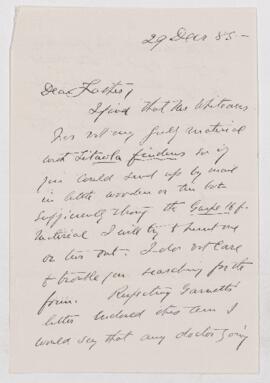 29 Decr 85 -
Dear Father,
I find that Mr Whiteaves
has not any fresh material
with so if
you could send up by mail
in little wooden or tin box
sufficiently strong the Gaspé
material I will try & hunt me
on this out. I do not care
to trouble you searching for the
form. Respecting Garnett's
letter enclosed this I
would say that any doctor going